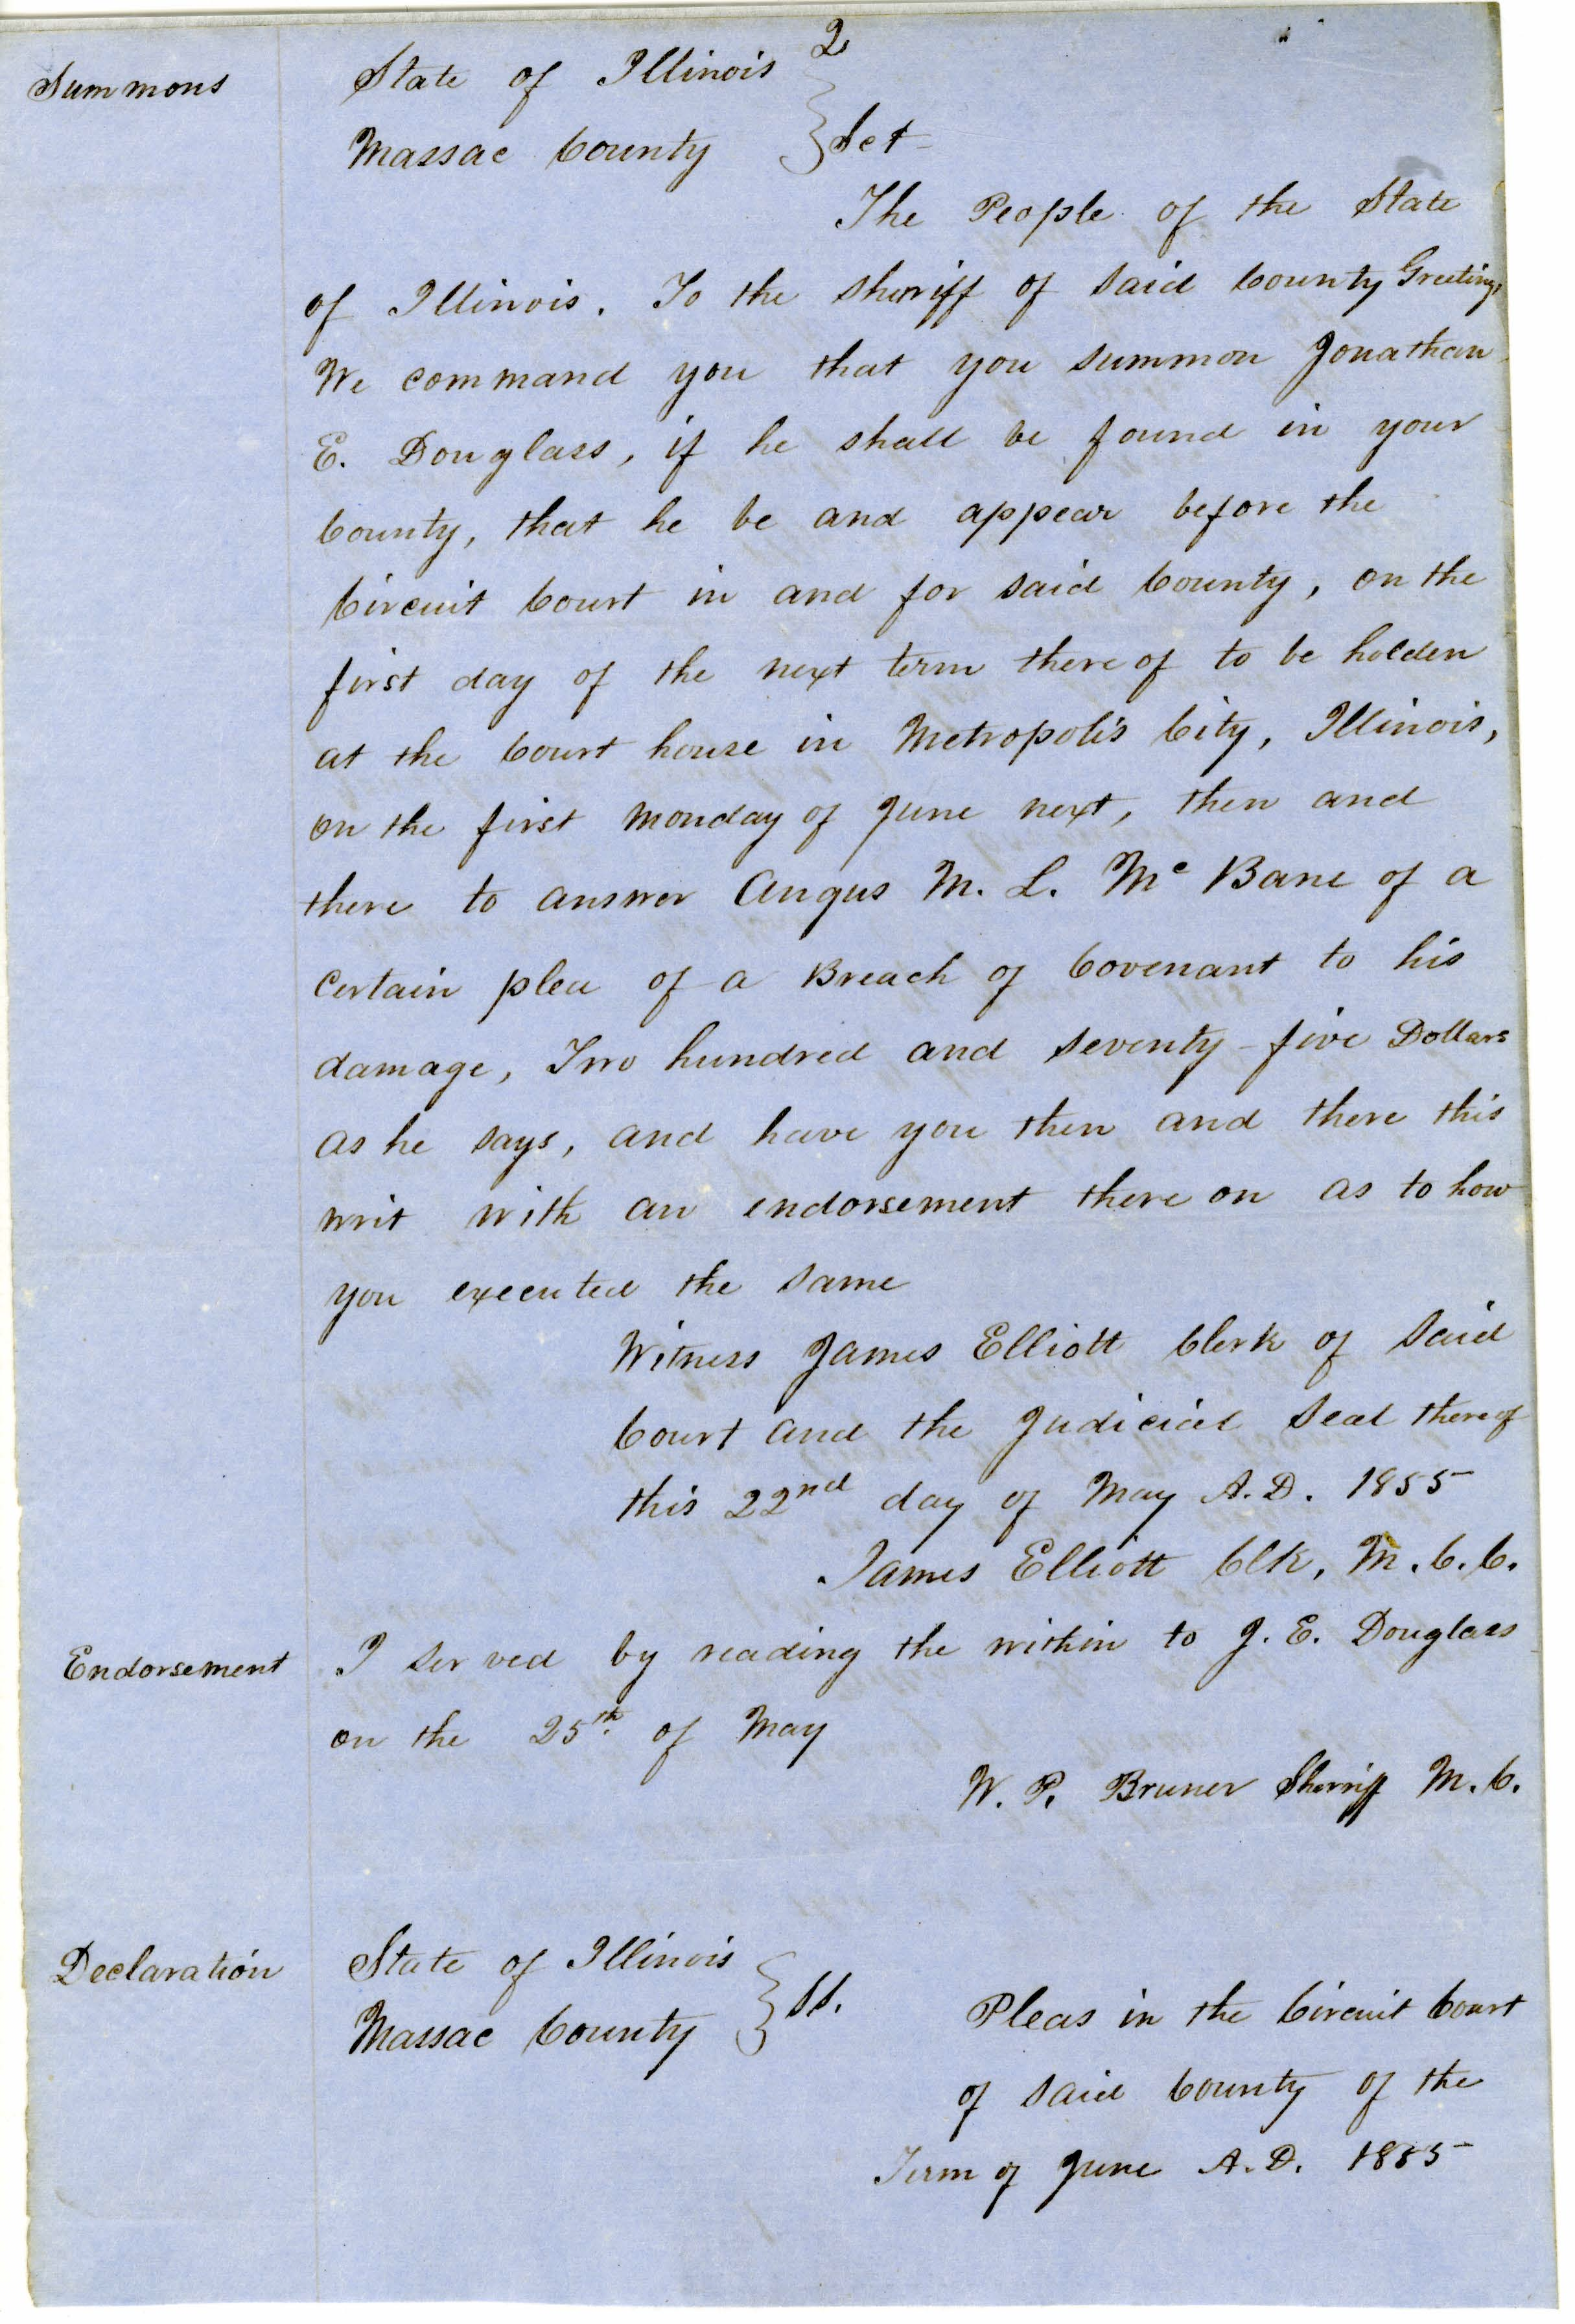 2
Summons State of Illinois
Massac County } Sct
The People of the State
of Illinois. To the sheriff of said County Greeting,
We command you that you summon Jonathan
E. Douglass, if he shall be found in your
County, that he be and appear before the
Circuit Court in and for said County, on the
first day of the next term there of to be holden
at the Court house in Metropolis City, Illinois,
on the first Monday of June next, then and
there to answer Angus M. L. Mc Bane of a
certain plea of a Breach of Covenant to his
damage, Two hundred and seventy-five Dollars
as he says, and have you then and there this
writ with an endorsement there on as to how
you executed the same
Witness James Elliott Clerk of said
Court and the Judicial Seal thereof
this 22nd day of May A.D. 1855
James Elliott Clk, M.C.C.
Endorsement I served by reading the within to J. E. Douglass
on the 25th. of May
W. P. Bruner Sherriff M.C.
Declaration State of Illinois
Massac County } SS.
Pleas in the Circuit Court
of said County of the
Term of June A.D. 1855